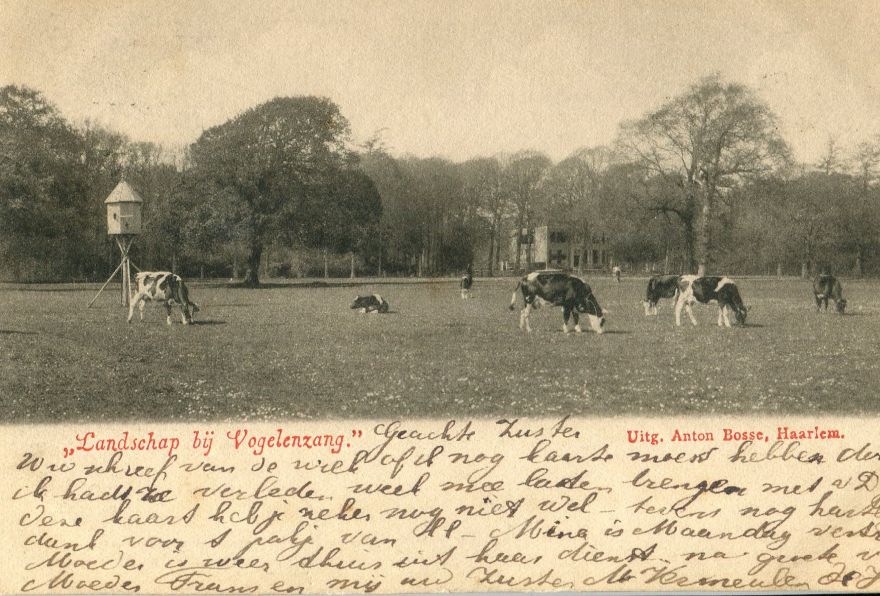 „Landschap bij Vogelenzang." Geachte Zuster
Uitg. Anton Bosse, Haarlem.
U schreef van de week of ik nog kaarte moest hebben
ik had verleden week mee laten brengen met v D
deze kaart heb je zeker nog niet wel – tevens nog harte
dank voor van – Mina is Maandag
Moeder is weer thuis uit haar dienst na groete v
Moeder Frans en mij uw Zuster M Vermeulen